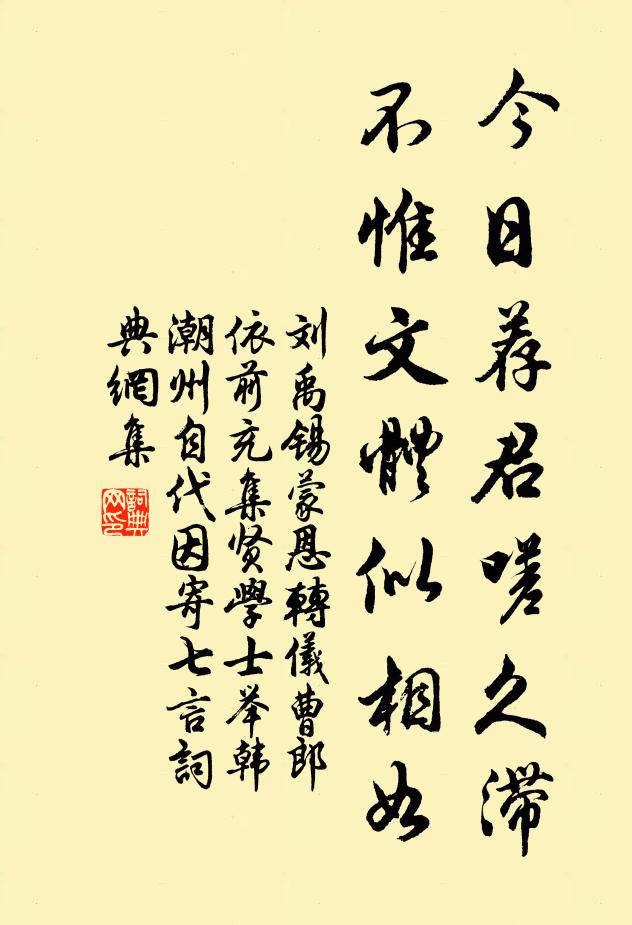 今日荐君嗟久滞
不惟文體似相如
刘禹锡蒙恩轉儀曹郎
依前充集贤學士举韩
潮州自代因寄七言詞
典網集
詞典
网印